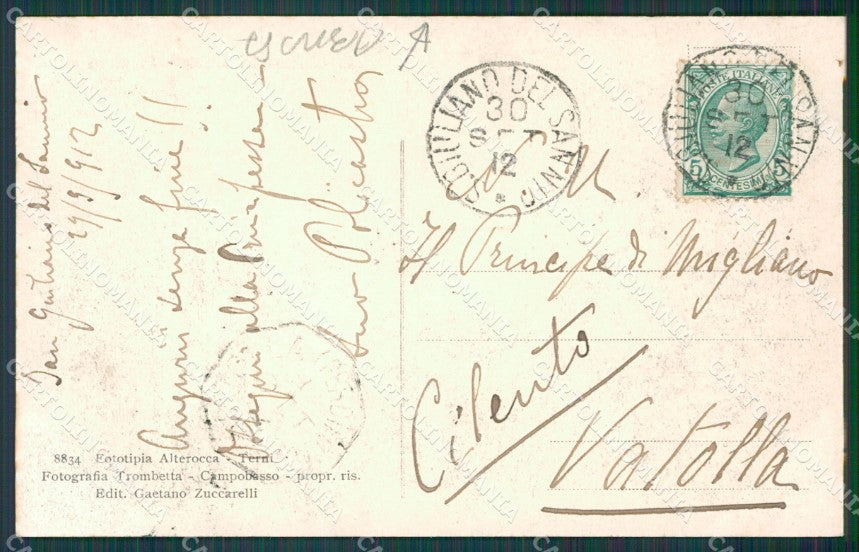 San Giuliano del Sannio
29/9/912
Auguri senza fine!!
Ossequi alla Principessa
suo Policastro
8834 Fototipia Alterocca - Terni
Fotografia Trombetta - Campobasso - propr. ris.
Edit. Gaetano Zuccarelli
S. GIULIANO DEL SANNIO
30
SET
12
S. GIULIANO DEL SANNIO
30
SET
12
POSTE ITALIANE
5 CENTESIMI 5
Il Principe di Migliano
Cilento
Vatolla
CARTOLINOMANIA